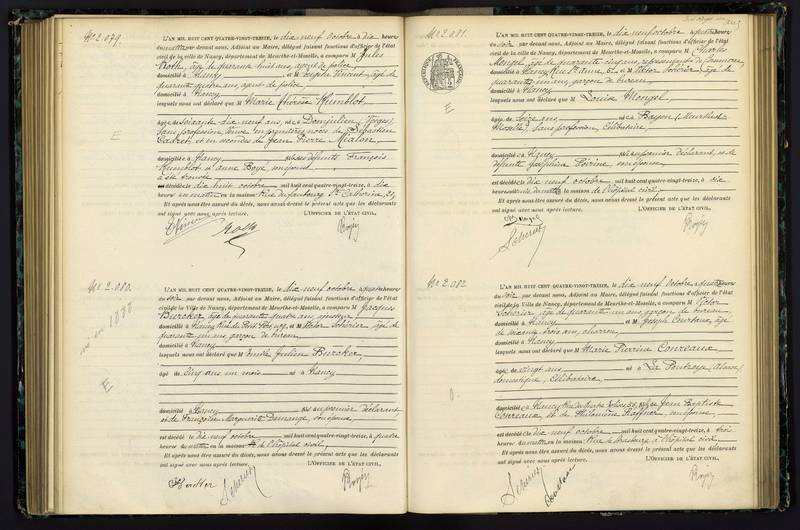 No 2.079.
L'AN MIL HUIT CENT QUATRE-VINGT-TREIZE, le dix neuf octobre à dix heures
du matin par devant nous, Adjoint au Maire, délégué faisant fonctions d'officier de l'état
civil de la ville de Nancy, département de Meurthe-et-Moselle, a comparu M Jules
Roth, âgé de quarante huit ans, agent de police
domicilié à Nancy et M Joseph Vincent, âgé de
quarante quatre ans, agent de police,
domicilié à Nancy
lesquels nous ont déclaré que M Marie Thérèse Humblot,
E
âgée de soixante dix neuf ans, née à Domjulien (Vosges)
sans profession, Veuve en premières noces de Sébastien
Cadret et en secondes de Jean Pierre Mialon,
domiciliée à Nancy fille des défunts François
Humblot et Anne Boyé, conjoints
a été trouvée
décédée dix huit octobre mil huit cent quatre-vingt-treize, à dix
heures en la maison Rue du faubourg Ste Catherine 21,
Et après nous être assuré du décès, nous avons dressé le présent acte que les déclarants
ont signé avec nous après lecture. L'OFFICIER DE L'ÉTAT CIVIL,
Roth
No 2.080.
L'AN MIL HUIT CENT QUATRE-VINGT-TREIZE, le dix neuf octobre à quatre heures
du soir par devant nous, Adjoint au Maire, délégué faisant fonctions d'officier de l'état
civil de la Ville de Nancy, département de Meurthe-et-Moselle, a comparu M Jacques
Burcker, âgé de quarante quatre ans, ajusteur,
domicilié à Nancy et M Victor Scherier, âgé de
quarante un ans, garçon de bureau,
domicilié à Nancy
lesquels nous ont déclaré que M Emile Julien Burcker,
E
âgé de cinq ans un mois né à Nancy
domicilié à Nancy fils du premier déclarant
et de Françoise Marguerite Demange, conjoints
est décédé le dix neuf octobre mil huit cent quatre-vingt-treize, à quatre
heures du matin en la maison de l'hôpital civil,
Et après nous être assuré du décès, nous avons dressé le présent acte que les déclarants
ont signé avec nous après lecture. L'OFFICIER DE L'ÉTAT CIVIL,
No 2.081.
L'AN MIL HUIT CENT QUATRE-VINGT-TREIZE, le dix neuf octobre à quatre heures
du soir par devant nous, Adjoint au Maire, délégué faisant fonctions d'officier de l'état
civil de la ville de Nancy, département de Meurthe-et-Moselle, a comparu M Charles
Mengel, âgé de quarante cinq ans, représentant de commerce,
domicilié à Nancy Rue St Anne 6 et M Victor Scherier, âgé de
quarante un ans, garçon de bureau,
domicilié à Nancy
lesquels nous ont déclaré que M Louise Mengel,
E
âgée de seize ans née à Bayon (Meurthe et
Moselle), sans profession, Célibataire,
domiciliée à Nancy fille du premier déclarant, et de
défunte Joséphine Poirine, conjoints
est décédée le dix neuf octobre mil huit cent quatre-vingt-treize, à dix
heures du matin en la maison de l'hôpital civil,
Et après nous être assuré du décès, nous avons dressé le présent acte que les déclarants
ont signé avec nous après lecture. L'OFFICIER DE L'ÉTAT CIVIL,
No 2.082
L'AN MIL HUIT CENT QUATRE-VINGT-TREIZE, le dix neuf octobre à quatre heures
du soir par devant nous, Adjoint au Maire, délégué faisant fonctions d'officier de l'état
civil de la Ville de Nancy, département de Meurthe-et-Moselle, a comparu M Victor
Scherier, âgé de quarante un ans, garçon de bureau,
domicilié à Nancy et M Joseph Courtaux, âgé
de soixante trois ans, charron
domicilié à Nancy
lesquels nous ont déclaré que M Marie Pierrine Conreaux
âgée de vingt ans née à La Poutroye (Alsace)
domestique, Célibataire,
domiciliée à Nancy fille de Jean Baptiste
Conreaux et de Philomène Haffner, conjoints
est décédée le dix neuf octobre mil huit cent quatre-vingt-treize, à trois
heures du matin en la maison Rue de Strasbourg à l'hôpital civil,
Et après nous être assuré du décès, nous avons dressé le présent acte que les déclarants
ont signé avec nous après lecture. L'OFFICIER DE L'ÉTAT CIVIL,